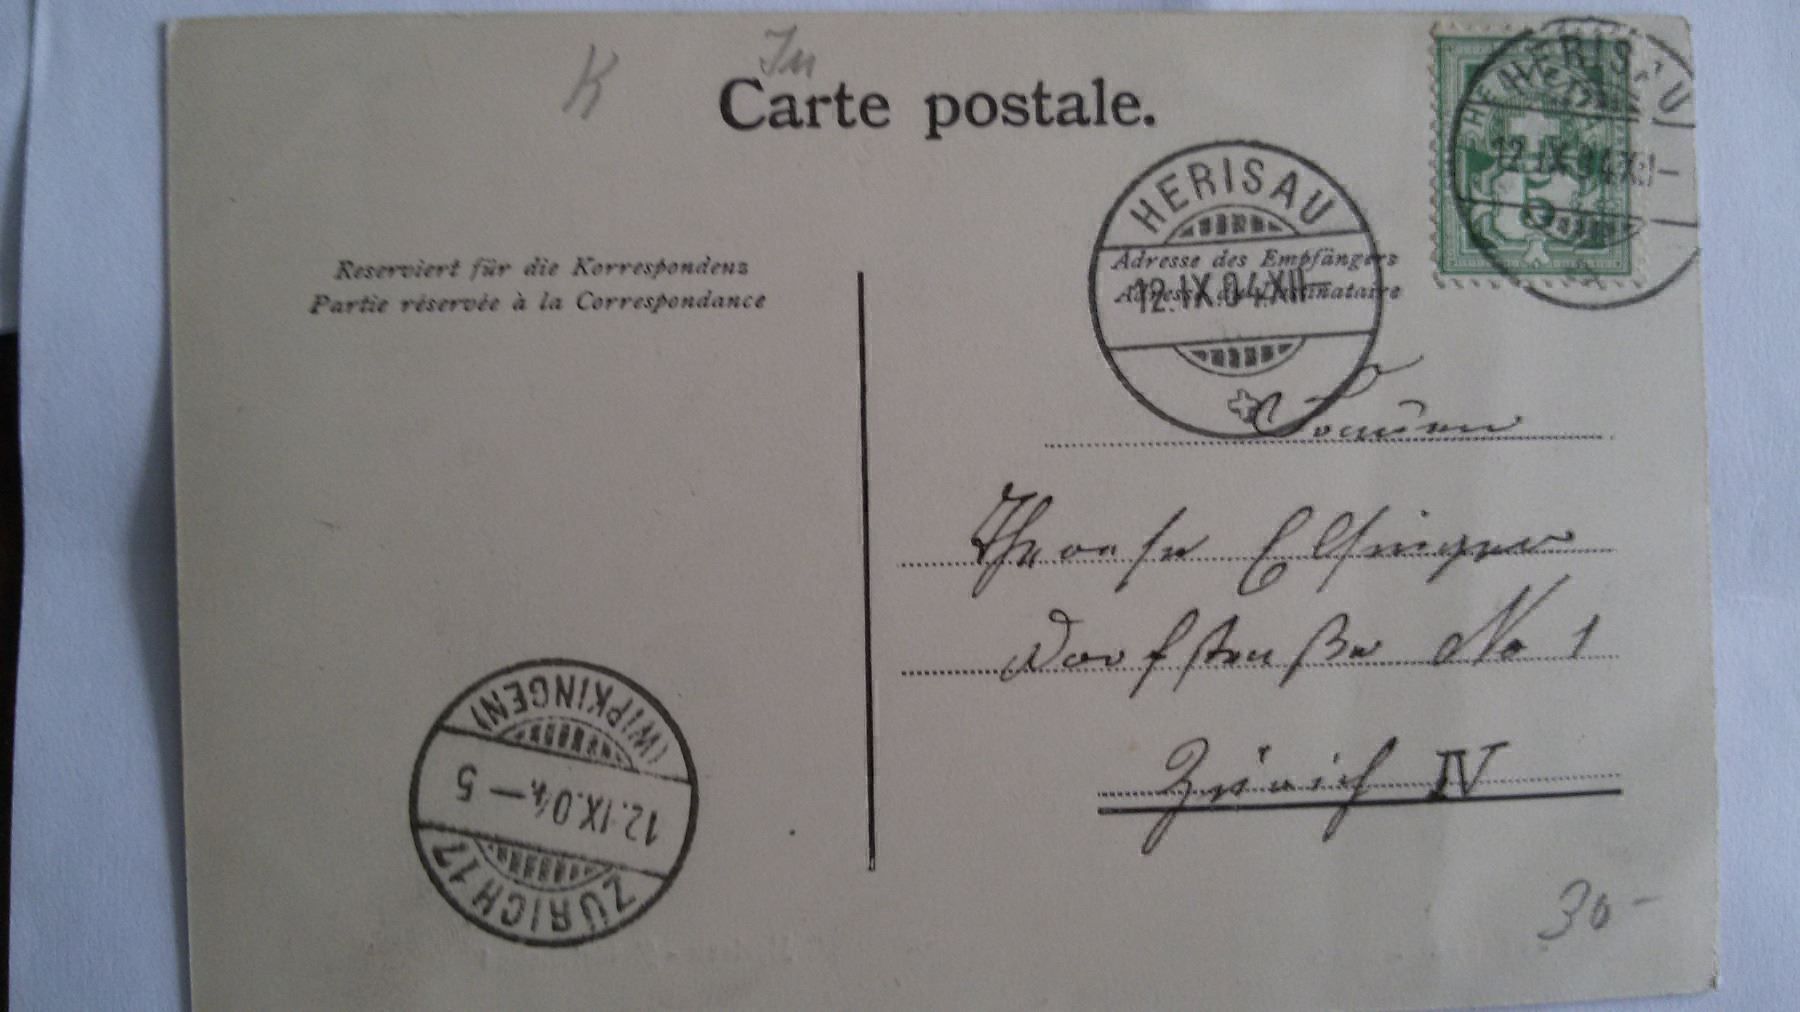 K
Carte postale.
HERISAU
12.IX.04.XII—
HERISAU
12.IX.04.XI—
5
Reserviert für die Korrespondenz
Partie réservée à la Correspondance
Adresse des Empfängers
Adresse du destinataire
Elsinger
Dorfstraße No 1
Zürich IV
(WIPKINGEN)
12.IX.04.—5
ZÜRICH 17
30-